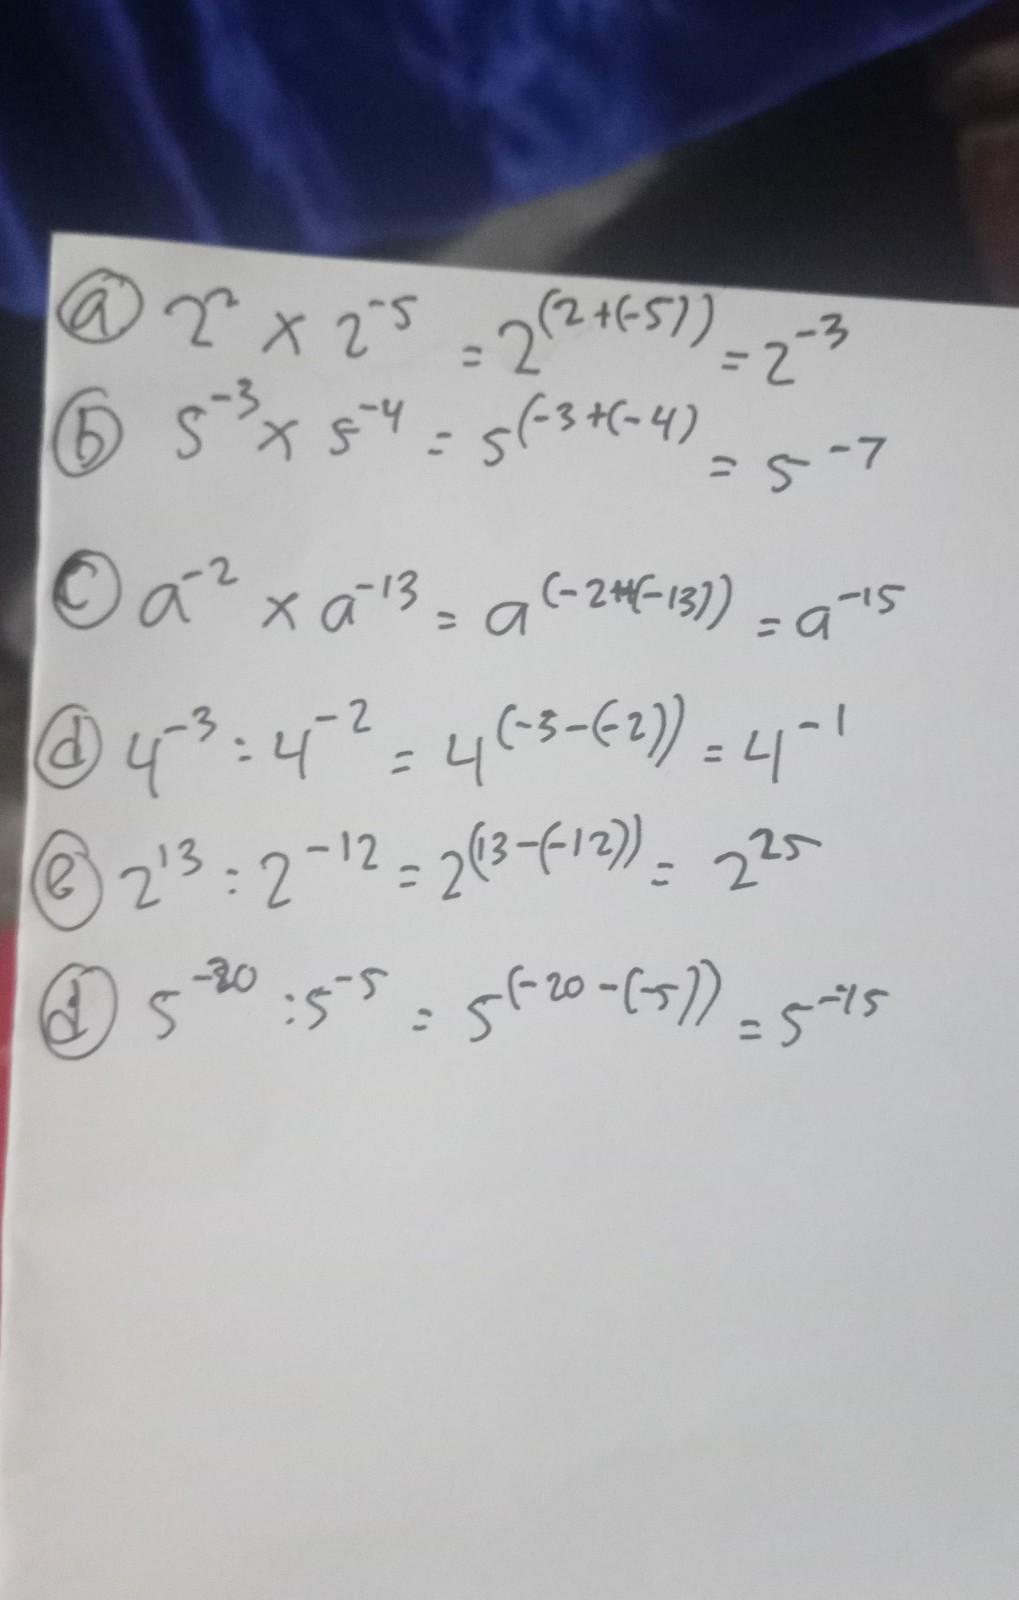 ⓐ 2² × 2⁻⁵ = 2⁽²⁺⁽⁻⁵⁾⁾ = 2⁻³
ⓑ 5⁻³ × 5⁻⁴ = 5⁽⁻³⁺⁽⁻⁴⁾ = 5⁻⁷
ⓒ a⁻² × a⁻¹³ = a⁽⁻²⁺⁽⁻¹³⁾⁾ = a⁻¹⁵
ⓓ 4⁻³ : 4⁻² = 4⁽⁻³⁻⁽⁻²⁾⁾ = 4⁻¹
ⓔ 2¹³ : 2⁻¹² = 2⁽¹³⁻⁽⁻¹²⁾⁾ = 2²⁵
ⓓ 5⁻²⁰ : 5⁻⁵ = 5⁽⁻²⁰⁻⁽⁻⁵⁾⁾ = 5⁻¹⁵